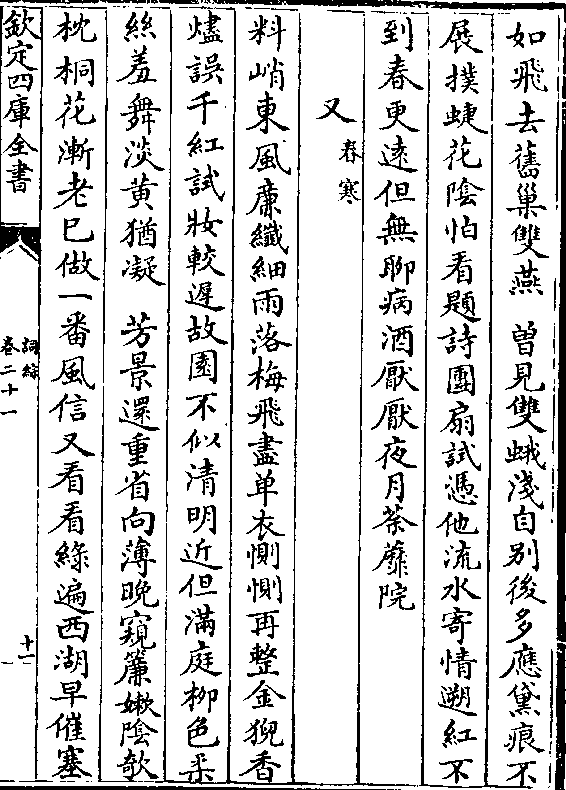 如飛去舊巢雙燕　曽見雙蛾淺自别後多應黛痕不
展撲蝶花陰怕看題詩團扇試憑他流水寄情遡紅不
到春更遠但無聊病酒厭厭夜月荼蘼院
又春寒
料峭東風㢘纖細雨落梅飛盡单衣惻惻再整金猊香
燼誤千紅試妝較遲故園不似清明近但滿庭栁色柔
絲羞舞淡黃猶凝　芳景還重省向薄晚窺簾嫩陰欹
枕桐花漸老已做一番風信又看看綠遍西湖早催塞
欽定四庫全書
詞綜
卷二十一
十一